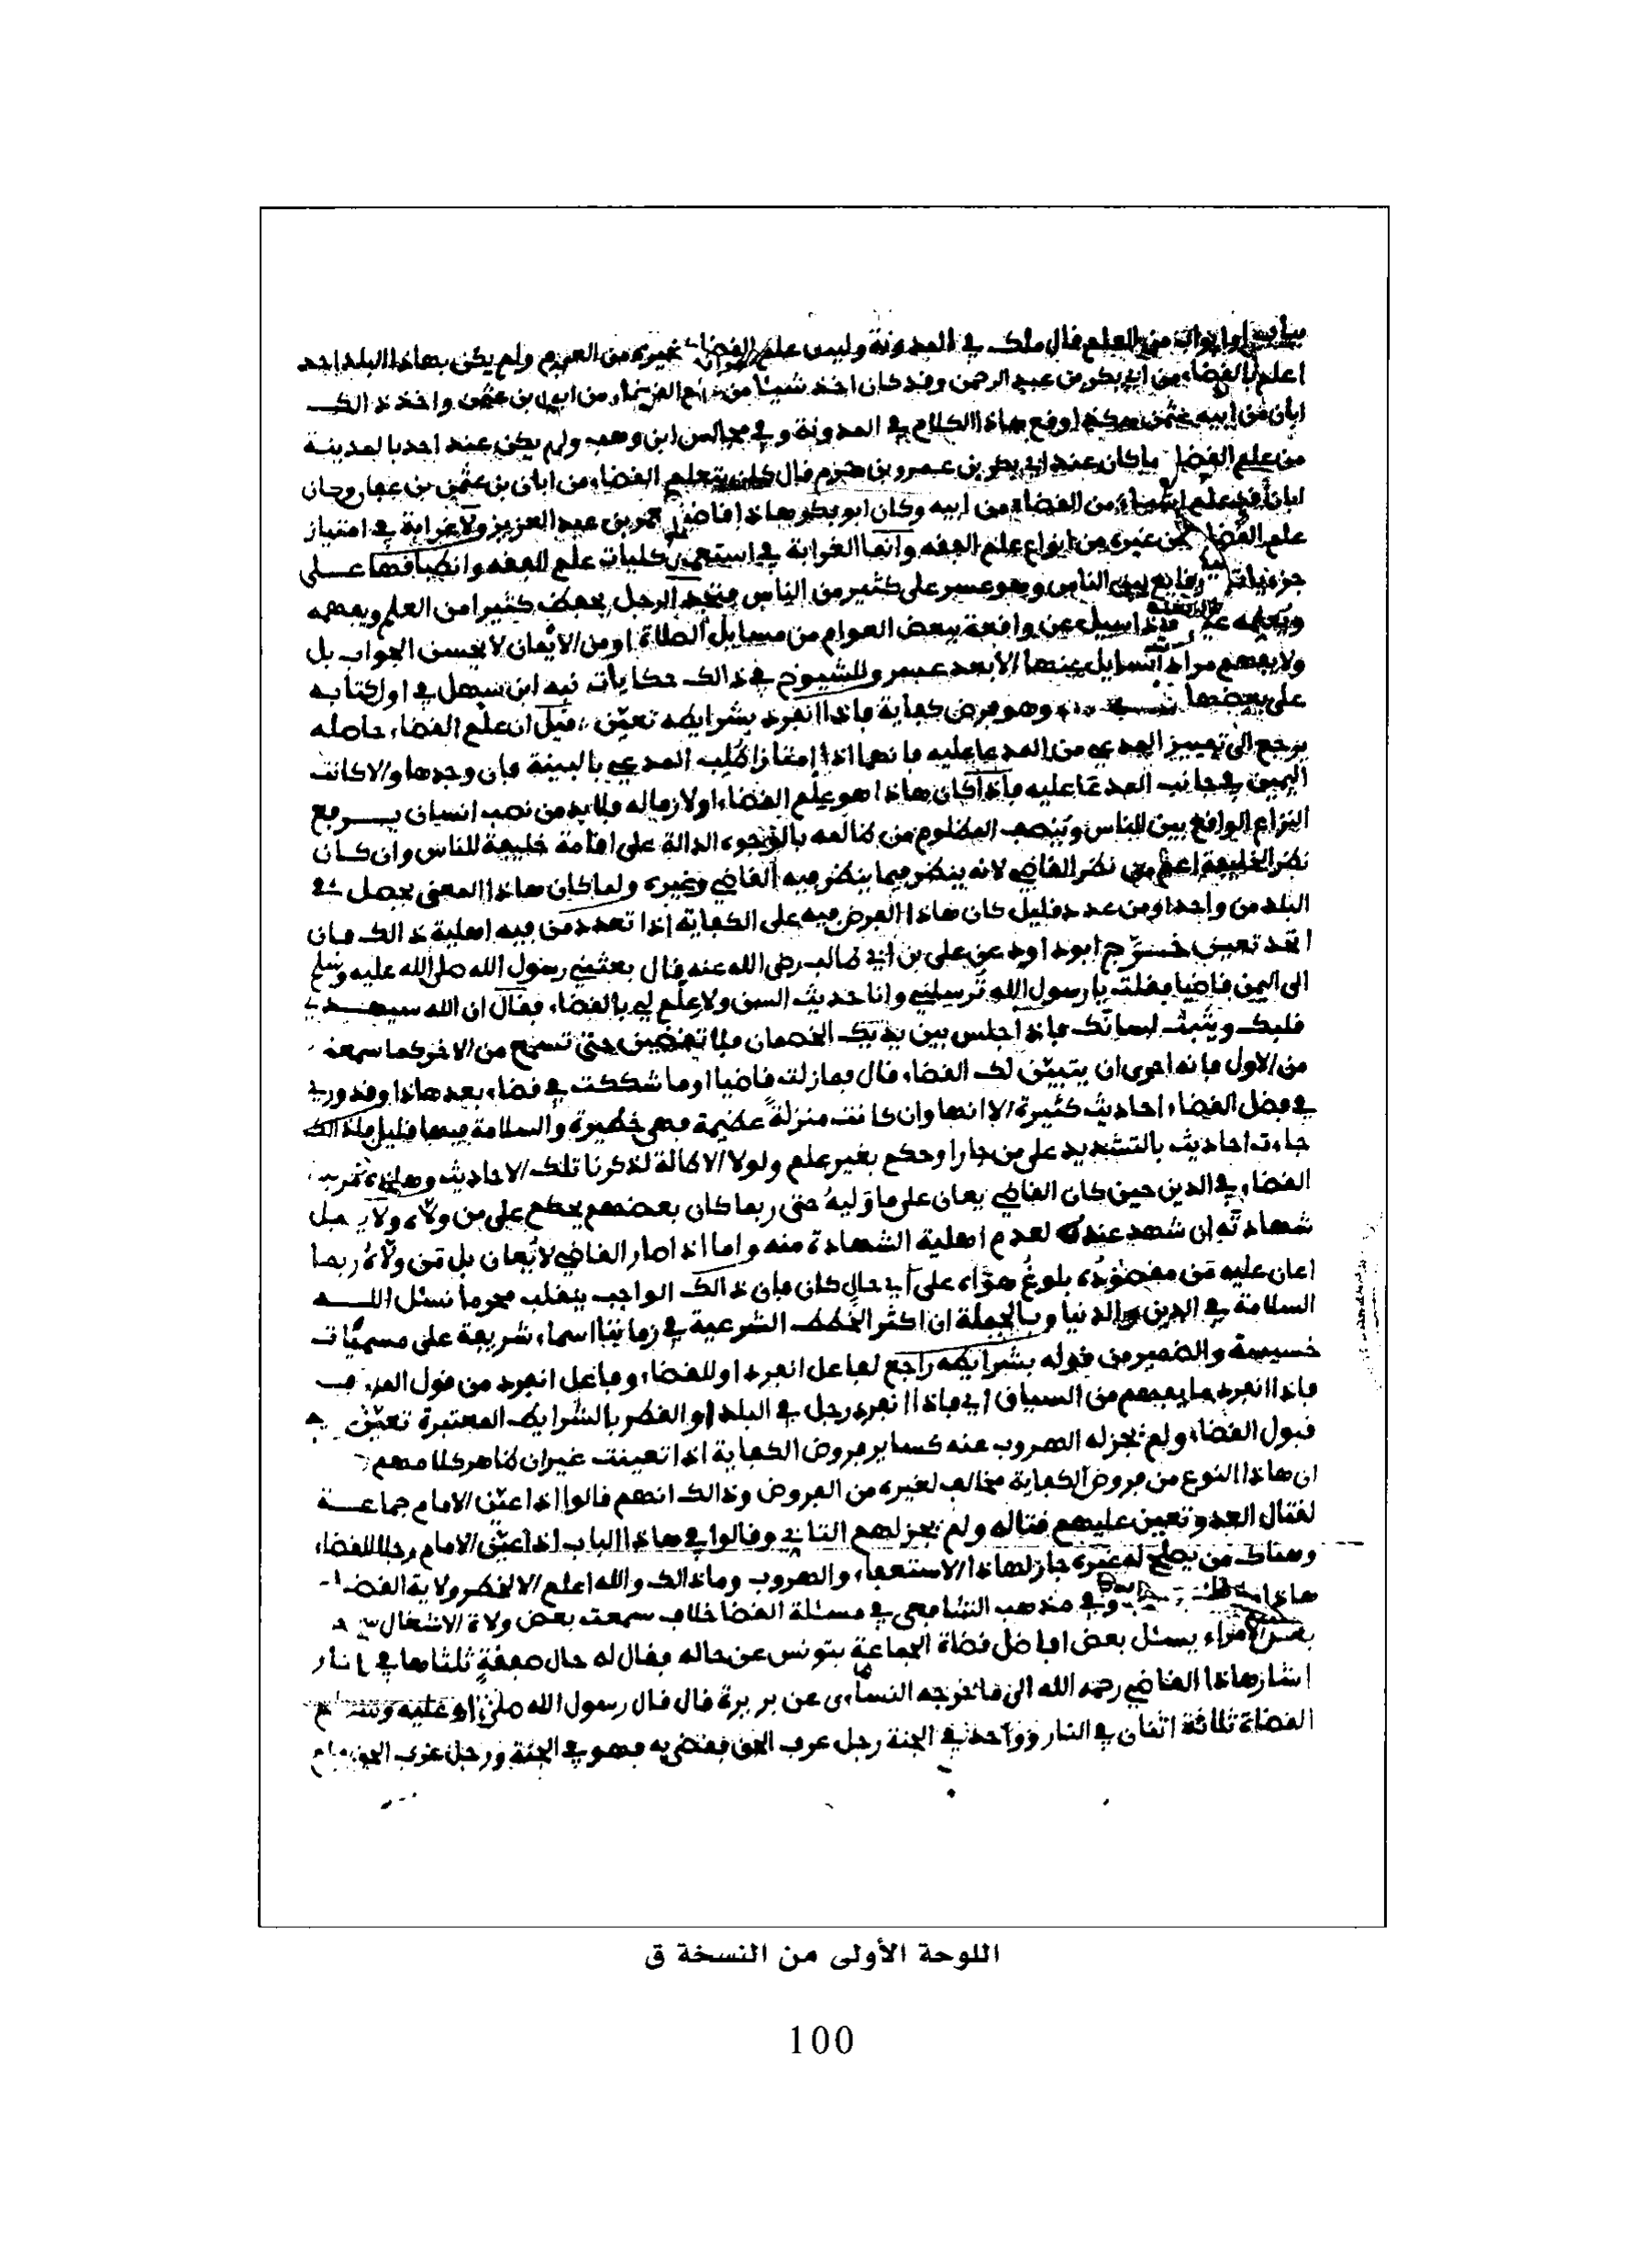 من العلم قال ملك في المدونة وليس علم القضاء كغيره من العلوم ولم يكن بهاذا البلد احد
اعلم بالقضاء من ابي بكر بن عبد الرحمن وقد كان اخذ شيئا من علم القضاء من ابان بن عثمن واخذ ذالك
ابان من ابيه عثمن هكذا وقع هاذا الكلام في المدونة وفي مجالس ابن وهب ولم يكن عند احد بالمدينة
من علم القضا ما كان عند ابي بكر بن عمرو بن حزم قال كان يتعلم القضاء من ابان بن عثمن بن عفان وكان
ابان قد علم اشياء من القضاء من ابيه وكان ابو بكر هاذا قاضي عمر بن عبد العزيز ولا غرابة في امتياز
علم القضا عن غيره من انواع علم الفقه وانما الغرابة في استعمال كليات علم الفقه وانطباقها على
جزئيات الوقايع بين الناس وهو عسر على كثير من الناس فتجد الرجل يحفظ كثيرا من العلم ويفهمه
ويعلمه غيره فاذا سيل عن واقعة ببعض العوام من مسايل الصلاة او من الايمان لا يحسن الجواب بل
ولا يفهم مراد السايل عنها الا بعد عسر وللشيوخ في ذالك حكايات نبه ابن سهل في اول كتابه
على بعضها وهو فرض كفاية فاذا انفرد بشرايطه تعين قيل ان علم القضاء حاصله
يرجع الى تمييز المدعي من المدعا عليه فانهما اذا امتازا طلب المدعي بالبينة فان وجدها والا كانت
اليمين في جانب المدعا عليه فاذا كان هاذا هو علم القضاء او لازما له فلا بد من نصب انسان يرفع
النزاع الواقع بين الناس وينصف المظلوم من ظالمه بالوجوه الدالة على اقامة خليفة للناس وان كان
نظر الخليفة اعم من نظر القاضي لانه ينظر فيما ينظر فيه القاضي وغيره ولما كان هاذا المعنى يحصل في
البلد من واحد او من عدد قليل كان هاذا الفرض فيه على الكفاية اذا تعدد من فيه اهلية ذالك فان
اتحد تعين خرج ابو داود عن علي بن ابي طالب رضي الله عنه قال بعثني رسول الله صلى الله عليه وسلم
الى اليمن قاضيا فقلت يا رسول الله ترسلني وانا حديث السن ولا علم لي بالقضاء فقال ان الله سيهدي
قلبك ويثبت لسانك فاذا جلس بين يديك الخصمان فلا تقضين حتى تسمع من الاخر كما سمعت
من الاول فانه احرى ان يتبين لك القضاء قال فمازلت قاضيا او ما شككت في قضاء بعد هاذا وقد ورد
في فضل القضاء احاديث كثيرة الا انها وان كانت منزلة عظيمة فهي خطيرة والسلامة فيها قليل فلذالك
جاءت احاديث بالتشديد على من جار او حكم بغير علم ولولا الاطالة لذكرنا تلك الاحاديث وهاذه
القضاء في الدين حين كان القاضي يعان على ما وليه حتى ربما كان بعضهم يحكم على من ولاه ولا يقبل
شهادته ان شهد عنده لعدم اهلية الشهادة منه واما اذ صار القاضي لا يعان بل من ولاه ربما
اعان عليه من مقصوده بلوغ هواه على اي حال كان فان ذالك الواجب ينقلب محرما نسئل الله
السلامة في الدين والدنيا وبالجملة ان اكثر الخطط الشرعية في زماننا اسماء شريفة على مسميات
خسيسة والضمير من قوله بشرايطه راجع لفاعل انفرد او للقضاء وفاعل انفرد من قول المؤلف
فاذا انفرد ما يفهم من السياق اي فاذا انفرد رجل في البلد او القطر بالشرايط المعتبرة تعين
قبول القضاء ولم يجز له الهروب عنه كساير فروض الكفاية اذا تعينت غير ان ظاهر كلامهم
ان هاذا النوع من فروض الكفاية مخالف لغيره من الفروض وذالك انهم قالوا اذا عين الامام جماعة
لقتال العدو تعين عليهم قتاله ولم يجز لهم التاني وقالوا في هاذا الباب اذا عين الامام رجلا للقضاء
وهناك من يصلح له غيره جاز لهاذا الاستعفاء والهروب وما ذالك والله اعلم الا لخطر ولاية القضا
هاذا وفي مذهب الشافعي في مسئلة القضا خلاف سمعت بعض ولاة الاشغال
بعض الامراء يسئل بعض افاضل قضاة الجماعة بتونس عن حاله فقال له حال صفقة ثلثاها في النار
اشار هاذا القاضي رحمه الله الى ما خرجه النساءى عن بريرة قال قال رسول الله صلى الله عليه وسلم
القضاة ثلاثة اثنان في النار وواحد في الجنة رجل عرف الحق فقضى به فهو في الجنة ورجل عرف الحق فلم
اللوحة الأولى من النسخة ق
100